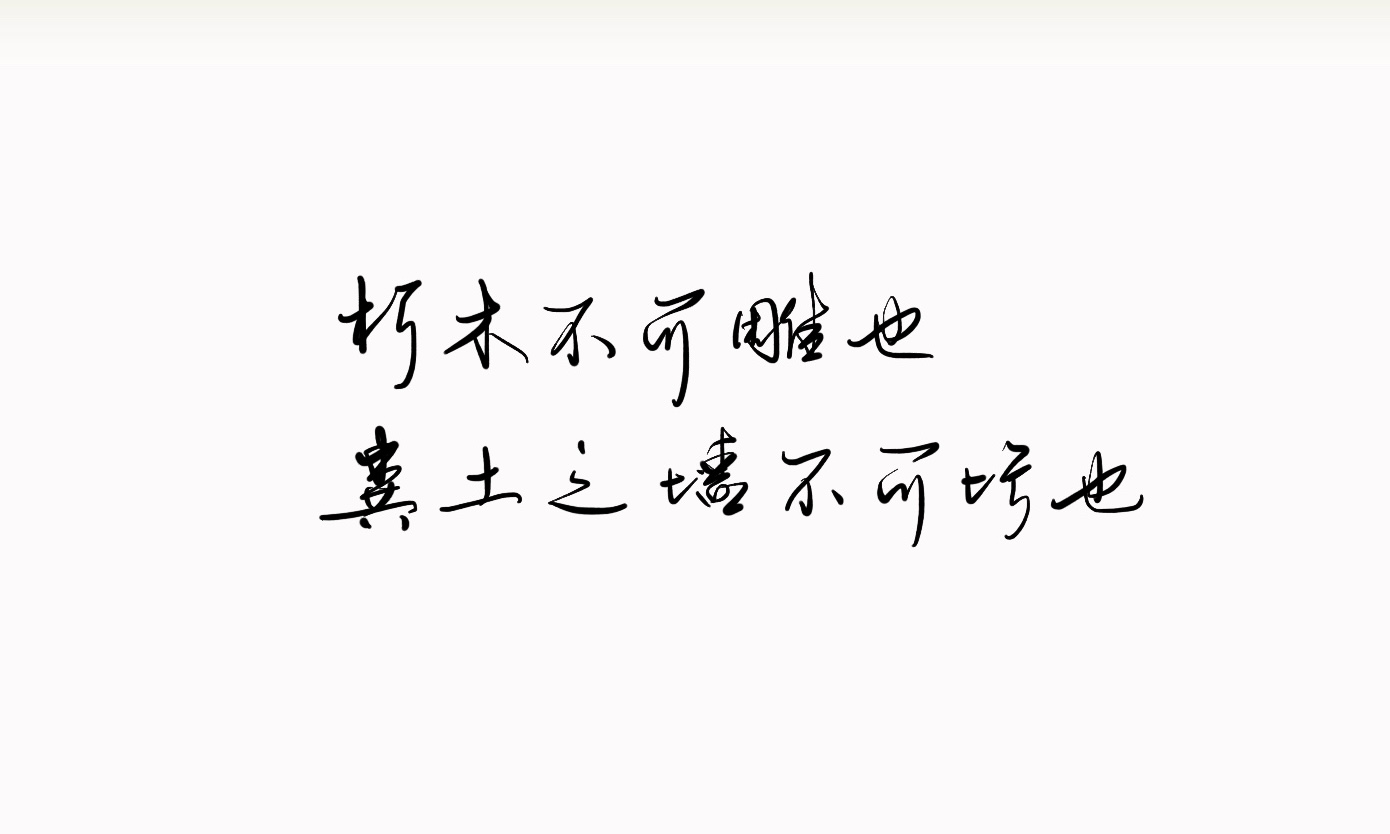 朽木不可雕也
粪土之墙不可圬也